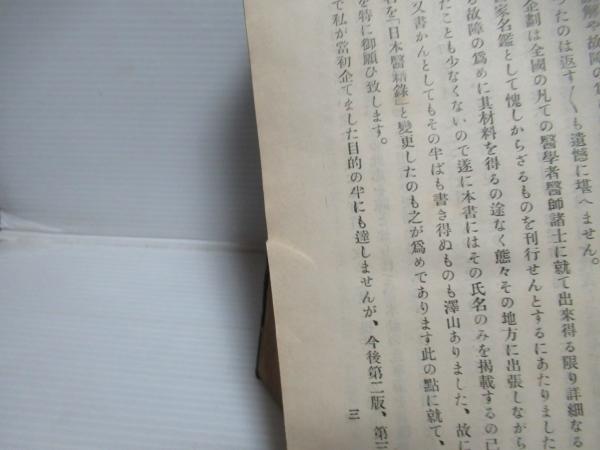 解や故障の爲
ったのは返す〳〵も遺憾に堪へません。
企劃は全國の凡ての醫學者醫師諸士に就て出來得る限り詳細なる
家名鑑として愧しからざるものを刊行せんとするにあたりました
故障の爲めに其材料を得るの途なく態々その地方に出張しながら
たことも少なくないので遂に本書にはその氏名のみを掲載するの已
又書かんとしてもその半ばも書き得ぬものも澤山ありました、故に
名を「日本醫籍錄」と變更したのも之が爲めであります此の點に就て、
を特に御願ひ致します。
で私が當初企てました目的の半にも達しませんが、今後第二版、第三
三